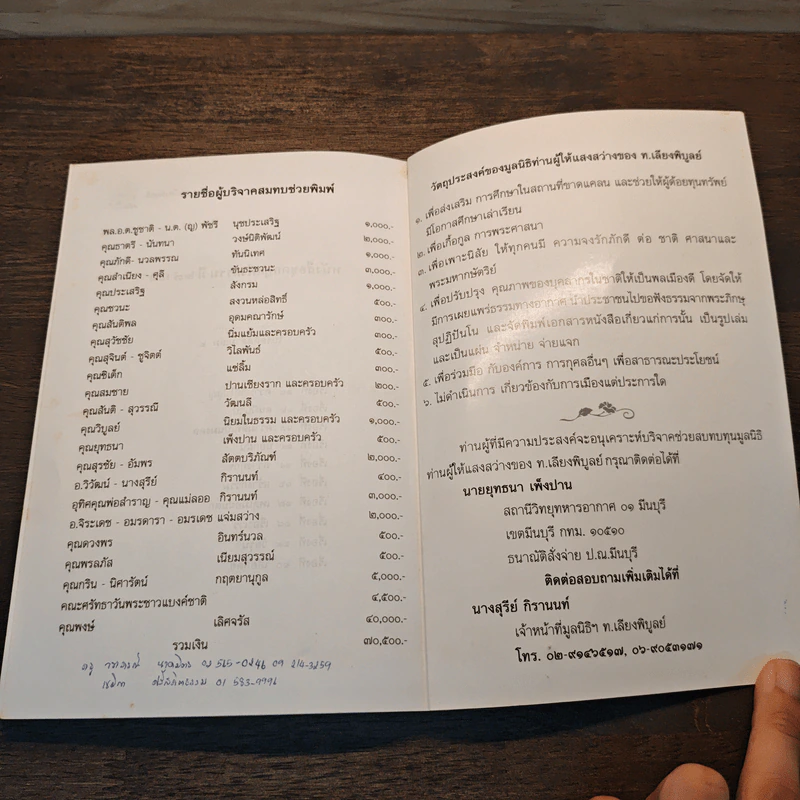 รายชื่อผู้บริจาคสมทบช่วยพิมพ์
พล.อ.ต.ชูชาติ - น.ต. (ญ) พัชรี นุชประเสริฐ ๑,๐๐๐.-
คุณธาตรี - นันทนา วงษ์นิติพัฒน์ ๒,๐๐๐.-
คุณภักดี- นวลพรรณ ทันนิเทศ ๑,๐๐๐.-
คุณสำเนียง - คุลี ขันธะชวนะ ๓,๐๐๐.-
คุณประเสริฐ สังกรม ๑,๐๐๐.-
คุณชวนะ สงวนหล่อสิทธิ์ ๕๐๐.-
คุณสันติพล อุดมคณารักษ์ ๓๐๐.-
คุณสุวัชชัย นิ่มแย้มและครอบครัว ๓๐๐.-
คุณสุจินต์ - ชูจิตต์ วิไลพันธ์ ๕๐๐.-
คุณชิเด็ก แซ่ลิ้ม ๓๐๐.-
คุณสมชาย ปานเชียงราก และครอบครัว ๒๐๐.-
คุณสันติ - สุวรรณี วัฒนลี ๕๐๐.-
คุณวิบูลย์ นิยมในธรรม และครอบครัว ๑,๐๐๐.-
คุณยุทธนา เพ็งปาน และครอบครัว ๕๐๐.-
คุณสุรชัย - อัมพร สัตตบริภัณฑ์ ๒,๐๐๐.-
อ.วิวัฒน์ - นางสุรีย์ กิรานนท์ ๔๐๐.-
อุทิศคุณพ่อสำราญ - คุณแม่ลออ กิรานนท์ ๓,๐๐๐.-
อ.จิระเดช - อมรดารา - อมรเดช แจ่มสว่าง ๒,๐๐๐.-
คุณดวงพร อินทร์นวล ๕๐๐.-
คุณพรลภัส เนียมสุวรรณ์ ๕๐๐.-
คุณกริน - นิศารัตน์ กฤตยานุกูล ๕,๐๐๐.-
คณะศรัทธาวันพระชาวแบงค์ชาติ ๔,๕๐๐.-
คุณพงษ์ เลิศจรัส ๔๐,๐๐๐.-
รวมเงิน ๗๐,๕๐๐.-
02 565-0246 09 214-3259
01 583-9996
วัตถุประสงค์ของมูลนิธิท่านผู้ให้แสงสว่างของ ท.เลียงพิบูลย์
๑. เพื่อส่งเสริม การศึกษาในสถานที่ขาดแคลน และช่วยให้ผู้ด้อยทุนทรัพย์
มีโอกาสศึกษาเล่าเรียน
๒. เพื่อเกื้อกูล การพระศาสนา
๓. เพื่อเพาะนิสัย ให้ทุกคนมี ความจงรักภักดี ต่อ ชาติ ศาสนาและ
พระมหากษัตริย์
๔. เพื่อปรับปรุง คุณภาพของบุคลากรในชาติให้เป็นพลเมืองดี โดยจัดให้
มีการเผยแพร่ธรรมทางอากาศ นำประชาชนไปขอฟังธรรมจากพระภิกษุ
สุปฏิปันโน และจัดพิมพ์เอกสารหนังสือเกี่ยวแก่การนั้น เป็นรูปเล่ม
และเป็นแผ่น จำหน่าย จ่ายแจก
๕. เพื่อร่วมมือ กับองค์การ การกุศลอื่นๆ เพื่อสาธารณะประโยชน์
๖. ไม่ดำเนินการ เกี่ยวข้องกับการเมืองแต่ประการใด
ท่านผู้ที่มีความประสงค์จะอนุเคราะห์บริจาคช่วยสบทบทุนมูลนิธิ
ท่านผู้ให้แสงสว่างของ ท.เลียงพิบูลย์ กรุณาติดต่อได้ที่
นายยุทธนา เพ็งปาน
สถานีวิทยุทหารอากาศ ๐๑ มีนบุรี
เขตมีนบุรี กทม. ๑๐๕๑๐
ธนาณัติสั่งจ่าย ป.ณ.มีนบุรี
ติดต่อสอบถามเพิ่มเติมได้ที่
นางสุรีย์ กิรานนท์
เจ้าหน้าที่มูลนิธิฯ ท.เลียงพิบูลย์
โทร. ๐๒-๙๑๔๖๕๑๗, ๐๖-๙๐๕๓๑๗๑